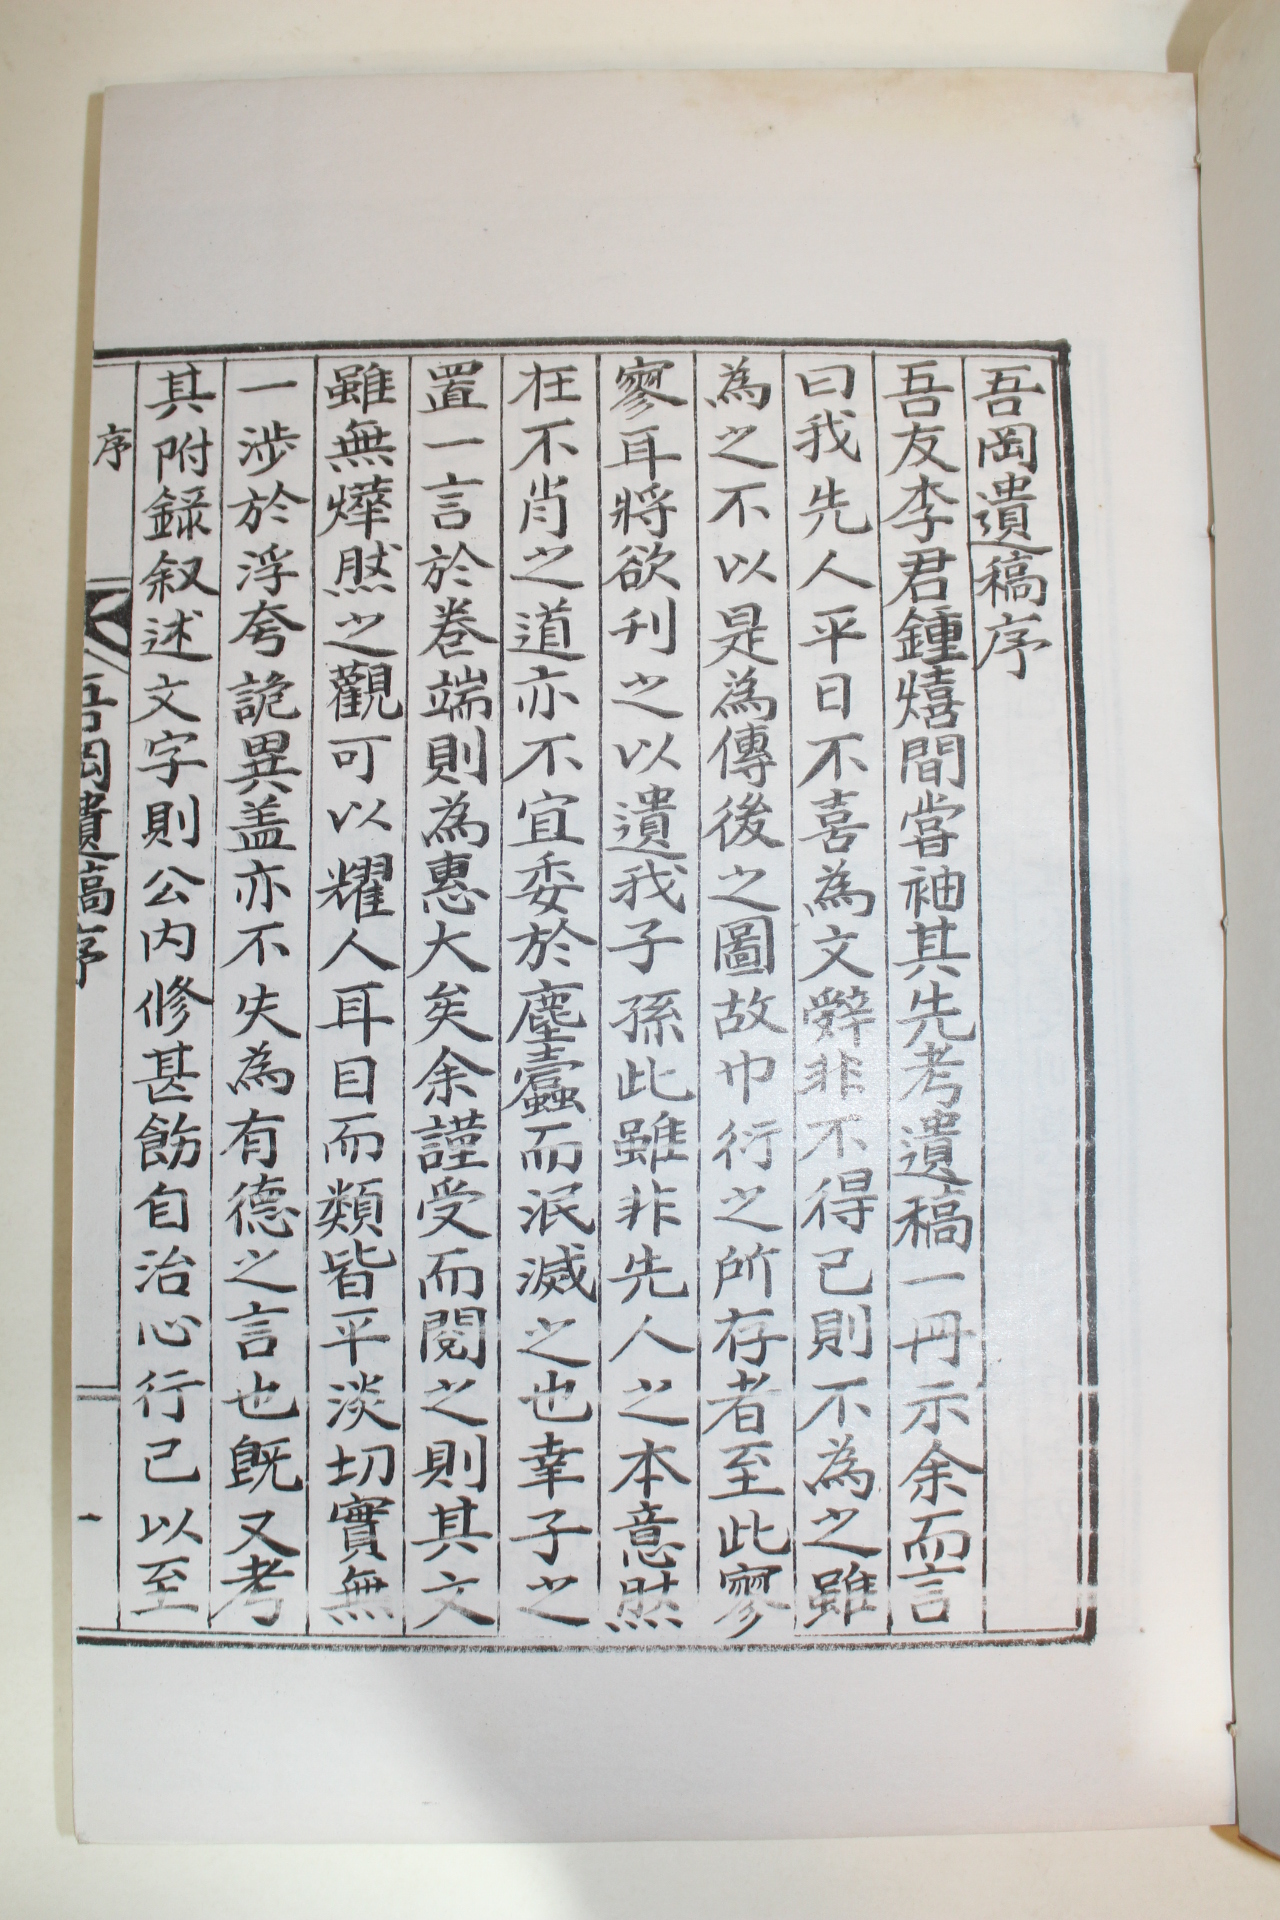 吾岡遺稿序
吾友李君鍾熺間嘗袖其先考遺稿一冊示余而言
曰我先人平日不喜為文辭非不得已則不為之雖
為之不以是為傳後之圖故巾衍之所存者至此寥
寥耳將欲刊之以遺我子孫此雖非先人之本意然
在不肖之道亦不宜委於塵蠹而泯滅之也幸子之
置一言於卷端則為惠大矣余謹受而閱之則其文
雖無燁然之觀可以耀人耳目而類皆平淡切實無
一涉於浮夸詭異盖亦不失為有德之言也旣又考
其附錄叙述文字則公內修甚飭自治心行己以至
序
吾岡遺稿序
一